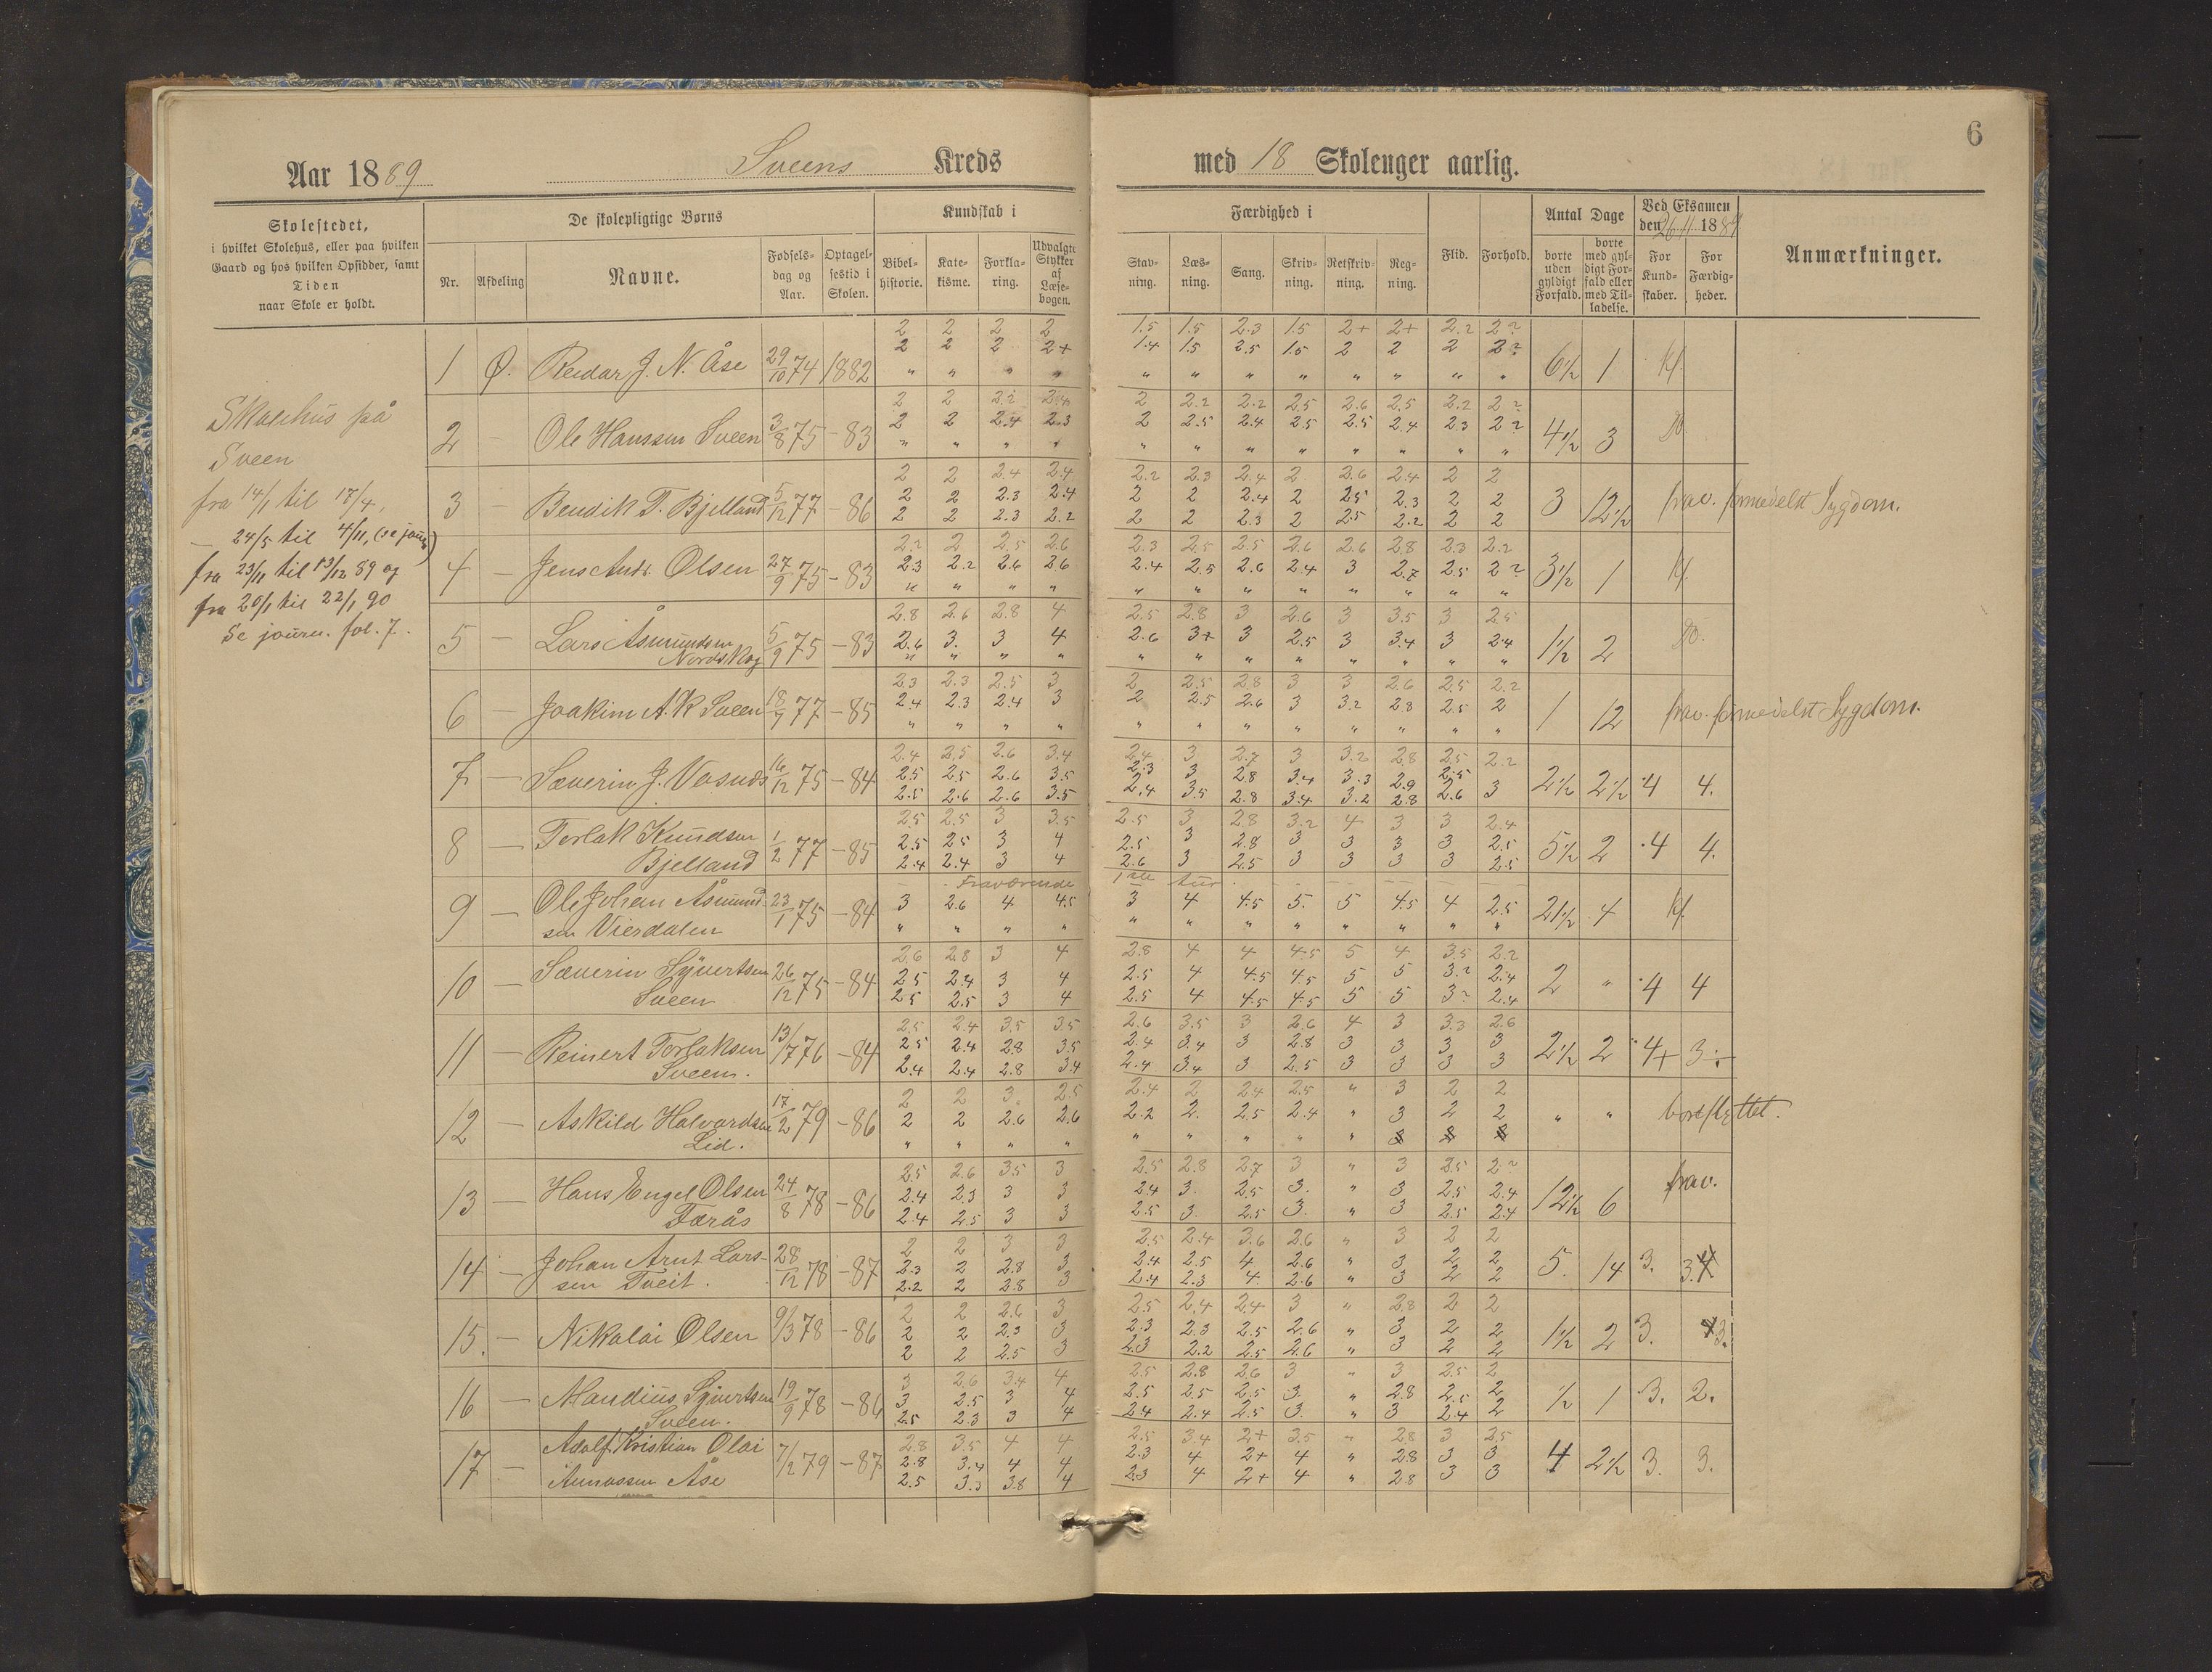 6
Aar 1889 Sveens Kreds med 18 Skoleuger aarlig.
Skolestedet,
i hvilket Skolehus, eller paa hvilken
Gaard og hos hvilken Opsidder, samt
Tiden
naar Skole er holdt.
De skolepligtige Børns
Nr. Afdeling Navne. Fødsels-dag og Aar. Optagel-sestid i Skolen.
Kundskab i
Bibel-historie. Kate-kisme. Forkla-ring. Udvalgte Stykker af Læse-bogen.
Færdighed i
Stav-ning. Læs-ning. Sang. Skriv-ning. Retskriv-ning. Reg-ning.
Flid. Forhold.
Antal Dage
borte uden gyldigt Forfald. borte med gyl-digt For-fald eller med Til-ladelse.
Ved Eksamen
den 26/11 1889
For Kund-skaber. For Færdig-heder.
Anmærkninger.
Skolehus på
Sveen
fra 14/1 til 17/4,
— 24/5 til 4/11, (se journ)
fra 23/11 til 13/12 89 og
fra 20/1 til 22/1 90
Se journ. fol. 7.
2 2 2 2 1.5 1.5 2.3 1.5 2+ 2+ 2.2 2?
2 2 2 2+ 1.4 1.5 2.5 1.5 2 2 2 2?
1 Ø. Reidar J. N. Åse 29/10 74 1882 " " " " " " " " " " " " 6½ 1
2 2 2.2 2.4 2 2.2 2.2 2.5 2.6 2.5 2.2 2?
2 2 2.4 2.3 2 2.5 2.4 2.5 2.5 2.4 2.3 2?
2 — Ole Hanssen Sveen 3/8 75 -83 " " " " " " " " " " " " 4½ 3 Do.
2 2 2.4 2.4 2.2 2.3 2.4 2 2.6 2.4 2 2
3 — Bendik T. Bjelland 5/12 77 -86 2 2 2.3 2.4 2 2 2.4 2 2.5 2.3 2 2 3 12½ frav. formedelst Sygdom.
2 2 2.3 2.2 2 2 2.3 2 2.5 2.2 2 2
2.2 2 2.5 2.6 2.3 2.5 2.5 2.6 2.6 2.8 2.3 2.2
4 — Jens Andr. Olsen 27/9 75 -83 2.3 2.2 2.6 2.6 2.4 2.5 2.6 2.4 3 2.7 2.5 2? 3½ 1
" " " " " " " " " " " "
2.8 2.6 2.8 4 2.5 2.8 3 2.6 3 3.5 3 2.5
5 — Lars Åsmundsen 5/9 75 -83 2.6 3. 3 4 2.6 3+ 3 2.5 3 3.4 3 2.4 1½ 2 Do.
Nordskog " " " " " " " " " " " "
2.3 2.3 2.5 3 2 2.5 2.8 3 3 2.6 2.5 2.2
6 — Joakim A. K Sveen 77 -85 2.4 2.3 2.4 3 2 2.5 2.6 3 3.2 2.8 2.5 2 1 12 frav. formedelst Sygdom.
" " " " " " " " " " " "
2.4 2.5 2.6 3.4 2.4 3 2.7 3 3.2 2.8 2.5 2.2
7 — Severin J. Vasnes 16/12 75 -84 2.5 2.5 2.6 3.5 2.3 3 2.8 3.4 3.3 2.9 2.5 2½ 2½ 4 4.
2.5 2.6 2.6 3.5 2.4 3.5 2.8 3.4 3.2 2.8 2.6 3
2.5 2.5 3 3.5 2.5 3 2.8 3.2 4 3 3 2.4
8 — Torlak Knudsen 1/2 77 -85 2.5 2.5 3 4 2.5 3 2.8 3 3 3 3 2.5 5½ 2 4 4.
Bjelland 2.4 2.4 3 4 2.6 3 2.5 3 3 3 3 2.5
Fraværende 1ste tur
9 — Ole Johan Åsmund- 23/1 75 -84 3 2.6 4 4.5 3 4 4.5 5. 5 4.5 4 2.5 21½ 4
sen Vierdalen " " " " " " " " " " " "
2.6 2.8 3 4 2.8 4 4 4.5 5 4 3.5 2.2
10 — Severin Syvertsen 26/12 75 -84 2.5 2.4 3 4 2.5 4 4.5 4.5 5 5 3.2 2.4 2 " 4 4
Sveen 2.5 2.5 3 4 2.5 4 4.5 4.5 5 5 3? 2.4
2.5 2.4 3.5 3.5 2.6 3.5 3 2.6 4 3 3.3 2.6
11 — Reinert Torlaksen 13/7 76 -84 2.5 2.4 2.8 3.5 2.4 3.4 3 2.8 3 3 3 3 2½ 2 4+ 3÷
Sveen. 2.4 2.4 2.8 3.4 2.4 3.4 3 2.5 3 3 3 3
2 2 3. 2.5 2.4 2 2.4 2.5 " 3 2 2
12 — Askild Halvardsen 17/2 79 -86 2 2 2.6 2.6 2.2 2. 2.5 2.4 " 3 2 2 " " bortflyttet.
Lid. " " " " " " " " "
2.5 2.6 3.5 3 2.5 2.8 2.7 3 " 3 2.5 2?
13 — Hans Engel Olsen 24/8 78 -86 2.4 2.3 3 3 2.4 3. 2.5 3. " 3 2.5 2.4 12½ 6 frav.
Færås 2.4 2.5 3 3 2.5 3. 2.5 3. " 3 2.5 2.4
2 2 3 3 2.5 2.4 3.6 2.6 " 3 2 2
14 — Johan Arnt Lars- 28/12 78 -87 2.3 2 2.8 3 2.4 2.5 4 2.6 " 3 2 2 5. 14 3. 3.
sen Tveit. 2.2 2 2.8 3 2.4 2.3 4. 2.6 " 3 2 2
2 2 2.6 3 2.5 2.4 2.4 3 " 2.8 2 2
15. — Nikolai Olsen 9/3 78 -86 2 2 2.3 3 2.3 2.3 2.5 2.6 " 3 2 2 1½ 2 3. 3.
2 2 2.5 3 2.3 2.2 2.5 2.6 " 3 2 2
3 2.6 3.4 4 2.5 2.8 2.6 3 " 3 2.5 2
16 — Mandius Syvertsen 19/9 78 -86 3 2.5 3 4 2.5 2.5 2.5 3. " 2.8 2.5 2 ½ 1 3. 2.
Sveen. 2.5 2.3 3 4 2.4 2.4 2.5 3. " 3 2.4 2
Adolf Kristian Olai 2.8 3.5 4 4 2.5 3.4 2+ 3.5 " 2.8 3 2.5
17 — 7/2 79 -87 2.8 3.4 4 4 2.3 4 2+ 4 " 2.8 3 3 4 2½ 3. 3.
Åse 2.5 3.3 3.8 4 2.3 4 2+ 4 " 2.8 3 3